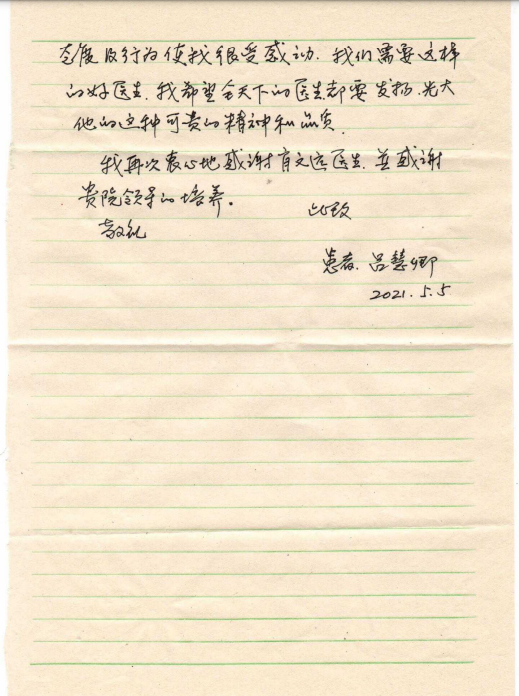 态度及行为使我很受感动. 我们需要这样
的好医生. 我希望全天下的医生都要发扬光大
他的这种可贵的精神和品质.
我再次衷心地感谢育文远医生. 並感谢
贵院领导的培养。
此致
敬礼
患者. 吕慧卿
2021.5.5